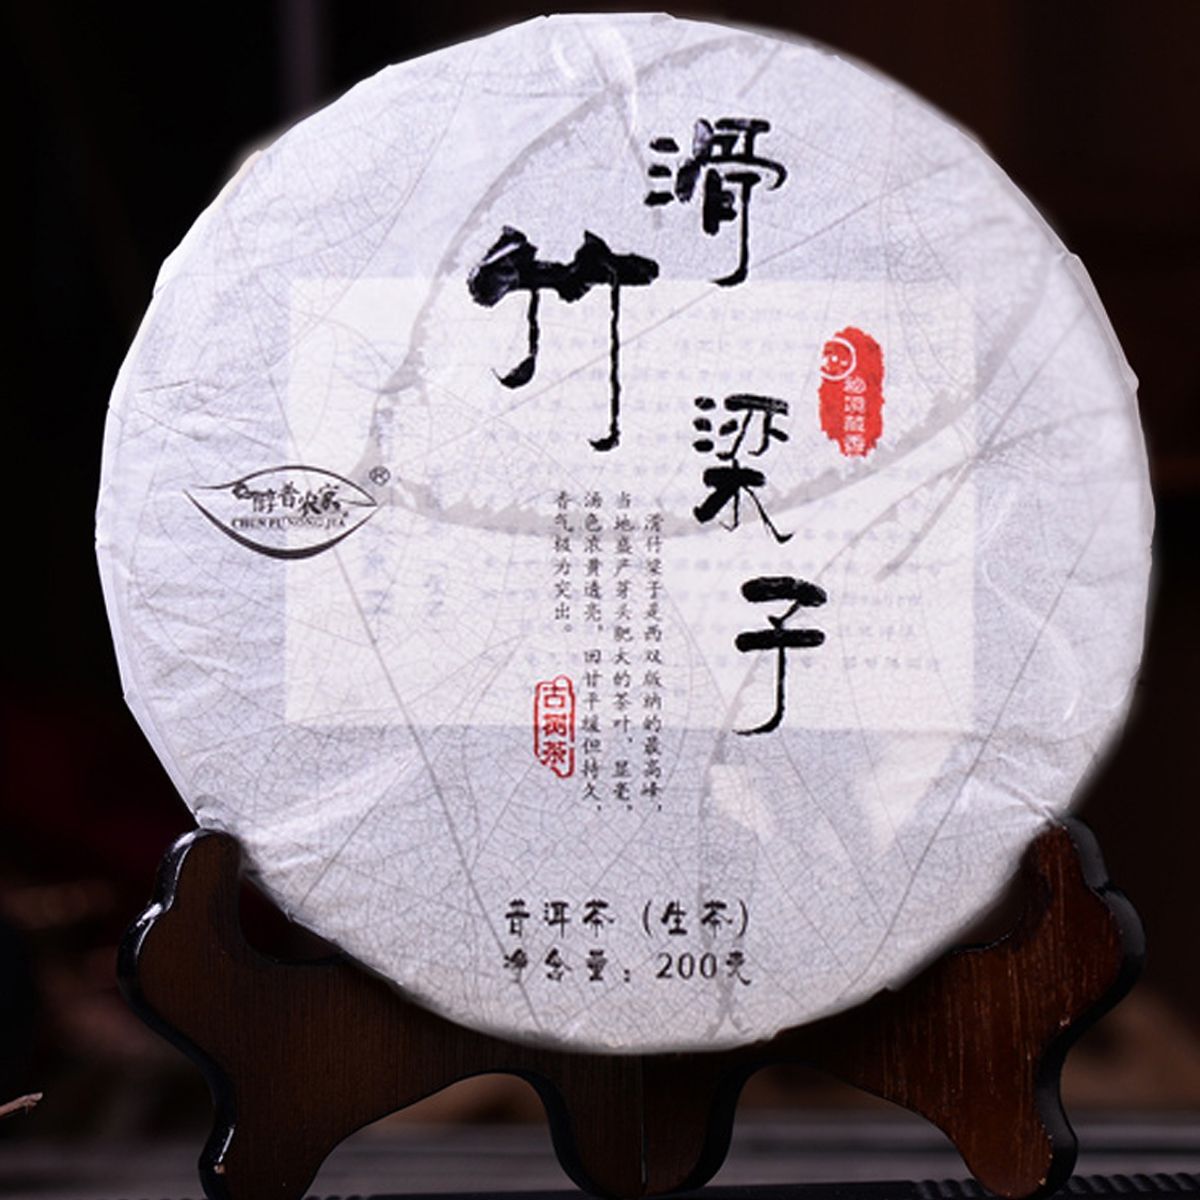 滑竹梁子
醇普农家
CHUN PU NONG JIA
®
滑竹梁子是西双版纳的最高峰，
当地盛产芽头肥大的茶叶，显毫，
汤色浓黄透亮，回甘平缓但持久，
香气极为突出。
古树茶
普洱茶（生茶）
净含量：200克